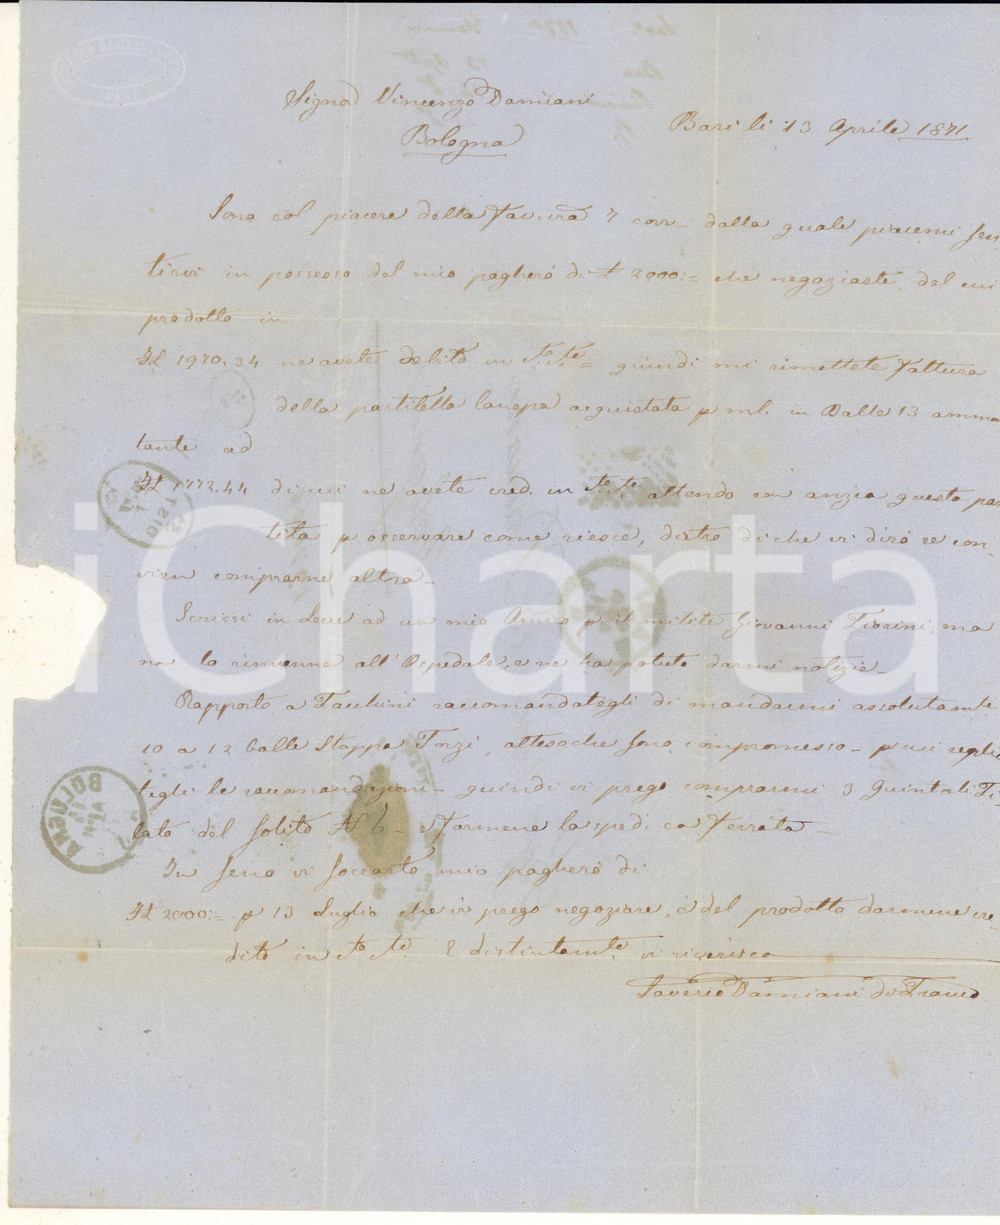 Signor Vincenzo Damiani
Bologna
Bari li 13 Aprile 1871
Sono col piacere della 7 corr dalla quale piacemi sen
tirvi in possesso del mio pagherò di £ 2000:= che negoziaste, del cui
prodotto in
It£ 1970.34 ne avete debito in quindi mi rimettete fattura
della partitella canepa acquistata p m/. in Balle 13 ammon
tante ad
It£ 1773.44 di cui ne avete cred. in attendo con anzia questa par
tita p osservare come riesce, dietro di che vi dirò se con-
vien comprarne altra
Scrissi in Lecce ad un mio Amico p il milite Giovanni Fiorini, ma
no lo rinvenne all'Ospedale, e ne ha potuto darmi notizie
Rapporto a raccomandategli di mandarmi assolutamte
10 a 12 balle Stoppa Torzi, attesoche sono compromesso p cui
tegli le raccomandazioni quindi vi prego comprarmi 3 Quintali Fi
lato del solito N 6 e farmene la sped. ca ferrata
In seno vi soccarto mio pagherò di
It£ 2000:= p 13 Luglio che vi prego negoziare, e del prodotto darmene cre
dito in E distintamte vi riverisco
Saverio Damiani di
BOLOGNA
iCharta